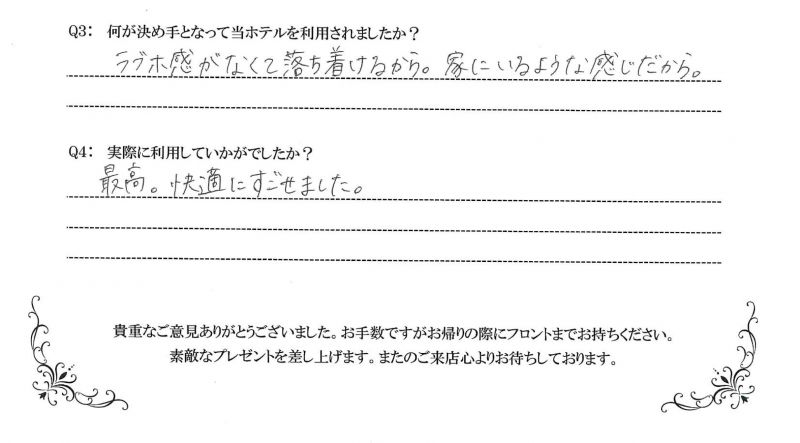 Q3: 何が決め手となって当ホテルを利用されましたか？
ラブホ感がなくて落ち着けるから。家にいるような感じだから。
Q4: 実際に利用していかがでしたか？
最高。快適にすごせました。
貴重なご意見ありがとうございました。お手数ですがお帰りの際にフロントまでお持ちください。
素敵なプレゼントを差し上げます。またのご来店心よりお待ちしております。